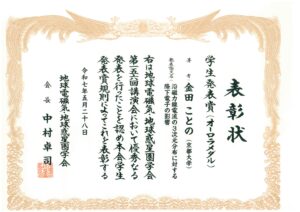 表彰状
学生発表賞(オーロラメダル)
金田 ことの
(京都大学)
沿磁力線電流の3次元分布に対する
降下電子の影響
右は地球電磁気・地球惑星圏学会
第一五六回講演会において優秀なる
発表を行ったことを認め本会学生
発表賞規則によってこれを表彰する
令和七年五月二十八日
地球電磁気・地球惑星圏学会
会長 中村 卓司